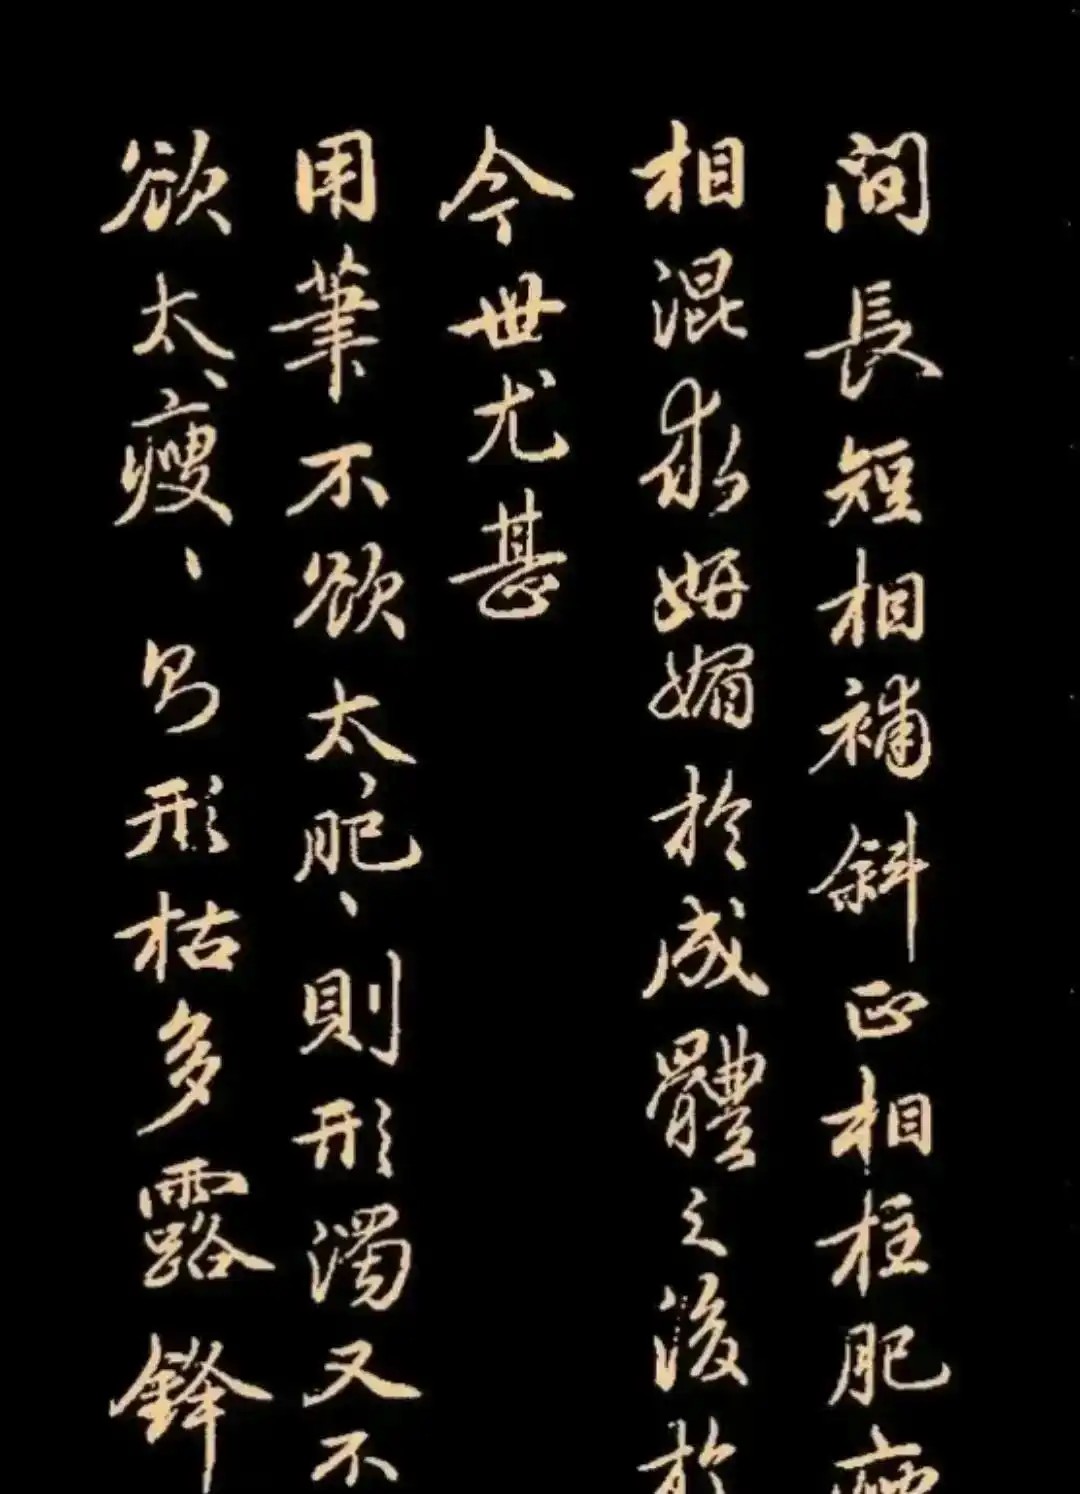 間長短相補斜正相柱肥瘦
相混求妍媚於成體之後於
今世尤甚
用筆不欲太肥、則形濁又不
欲太瘦、則形枯多露鋒